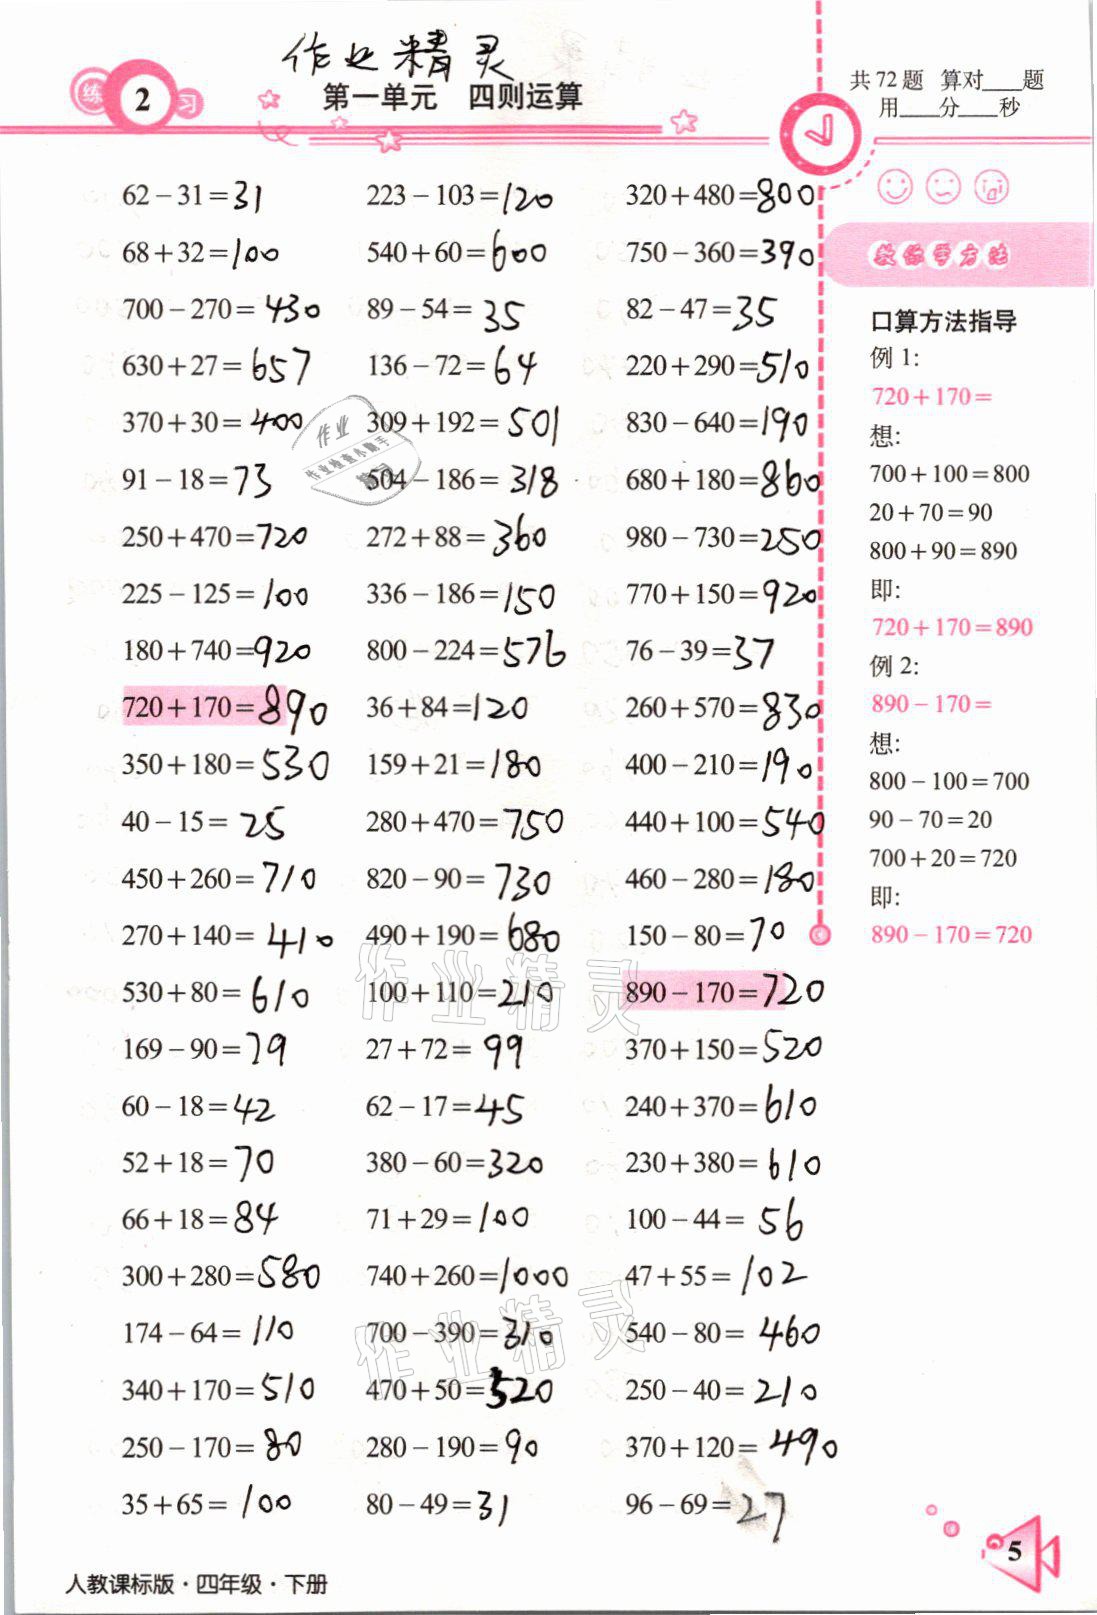 作业精灵
练 2 习
第一单元 四则运算
共72题 算对____题
用____分____秒
62－31=31 223－103=120 320+480=800
68+32=100 540+60=600 750－360=390
700－270=430 89－54=35 82－47=35
630+27=657 136－72=64 220+290=510
370+30=400 309+192=501 830－640=190
91－18=73 504－186=318 680+180=860
250+470=720 272+88=360 980－730=250
225－125=100 336－186=150 770+150=920
180+740=920 800－224=576 76－39=37
720+170=890 36+84=120 260+570=830
350+180=530 159+21=180 400－210=190
40－15=25 280+470=750 440+100=540
450+260=710 820－90=730 460－280=180
270+140=410 490+190=680 150－80=70
530+80=610 100+110=210 890－170=720
169－90=79 27+72=99 370+150=520
60－18=42 62－17=45 240+370=610
52+18=70 380－60=320 230+380=610
66+18=84 71+29=100 100－44=56
300+280=580 740+260=1000 47+55=102
174－64=110 700－390=310 540－80=460
340+170=510 470+50=520 250－40=210
250－170=80 280－190=90 370+120=490
35+65=100 80－49=31 96－69=27
教你学方法
口算方法指导
例1:
720+170=
想:
700+100=800
20+70=90
800+90=890
即:
720+170=890
例2:
890－170=
想:
800－100=700
90－70=20
700+20=720
即:
890－170=720
作业
作业检查小助手
精灵
作业精灵
作业精灵
人教课标版·四年级·下册
5